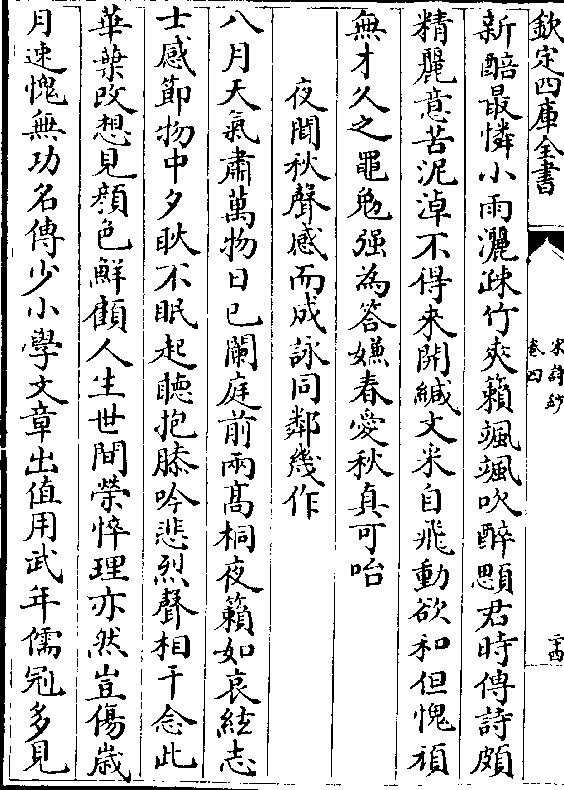 欽定四庫全書
宋詩鈔
卷四
二十四
新醅最憐小雨灑疎竹爽籟颯颯吹醉顋君時傳詩頗
精麗意苦泥淖不得来開緘文米自飛動欲和但愧頑
無才久之黽勉强為答嫌春愛秋真可咍
夜聞秋聲感而成詠同鄰幾作
八月天氣肅萬物日已闌庭前兩髙桐夜籟如哀絃志
士感節物中夕耿不眠起聴抱膝吟悲烈聲相干念此
華葉改想見顔色鮮顧人生世間榮悴理亦然豈傷歳
月速愧無功名傳少小學文章出值用武年儒冠多見